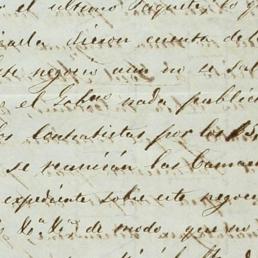 r el ultimo Paquete, lo q
dieron cuenta de l
negocio aun no se sal
e el Gobno nada public
os contratistas por los
se reunirán las Camar
expediente sobre este negoc
de modo, que no